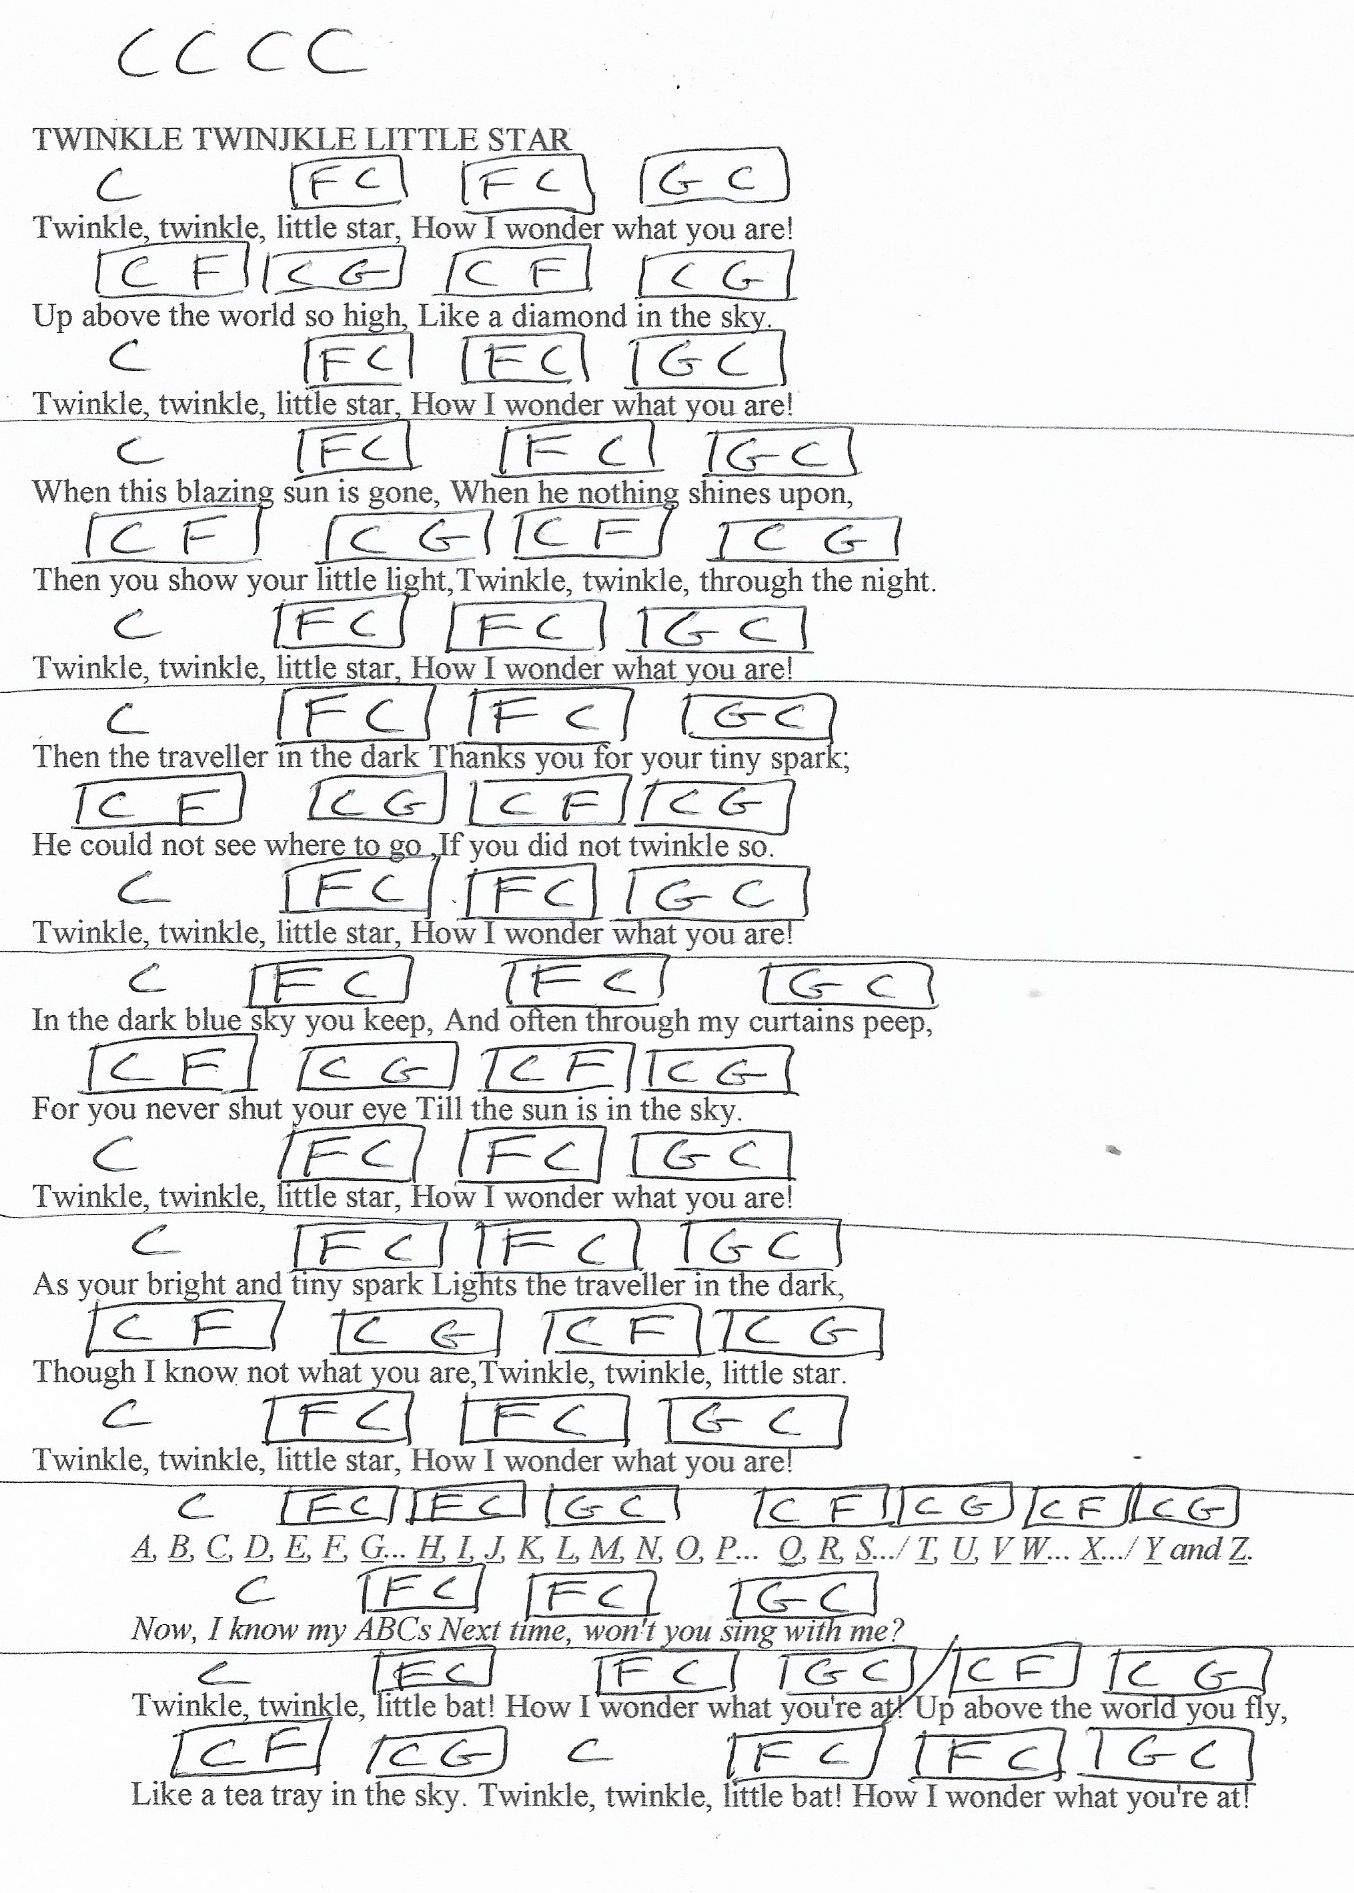 C C C C
TWINKLE TWINJKLE LITTLE STAR
C F C F C G C
Twinkle, twinkle, little star, How I wonder what you are!
C F C G C F C G
Up above the world so high, Like a diamond in the sky.
C F C F C G C
Twinkle, twinkle, little star, How I wonder what you are!
C F C F C G C
When this blazing sun is gone, When he nothing shines upon,
C F C G C F C G
Then you show your little light,Twinkle, twinkle, through the night.
C F C F C G C
Twinkle, twinkle, little star, How I wonder what you are!
C F C F C G C
Then the traveller in the dark Thanks you for your tiny spark;
C F C G C F C G
He could not see where to go ,If you did not twinkle so.
C F C F C G C
Twinkle, twinkle, little star, How I wonder what you are!
C F C F C G C
In the dark blue sky you keep, And often through my curtains peep,
C F C G C F C G
For you never shut your eye Till the sun is in the sky.
C F C F C G C
Twinkle, twinkle, little star, How I wonder what you are!
C F C F C G C
As your bright and tiny spark Lights the traveller in the dark,
C F C G C F C G
Though I know not what you are,Twinkle, twinkle, little star.
C F C F C G C
Twinkle, twinkle, little star, How I wonder what you are!
C F C F C G C C F C G C F C G
A, B, C, D, E, F, G... H, I, J, K, L, M, N, O, P... Q, R, S.../ T, U, V W... X.../ Y and Z.
C F C F C G C
Now, I know my ABCs Next time, won't you sing with me?
C F C F C G C / C F C G
Twinkle, twinkle, little bat! How I wonder what you're at! Up above the world you fly,
C F C G C F C F C G C
Like a tea tray in the sky. Twinkle, twinkle, little bat! How I wonder what you're at!